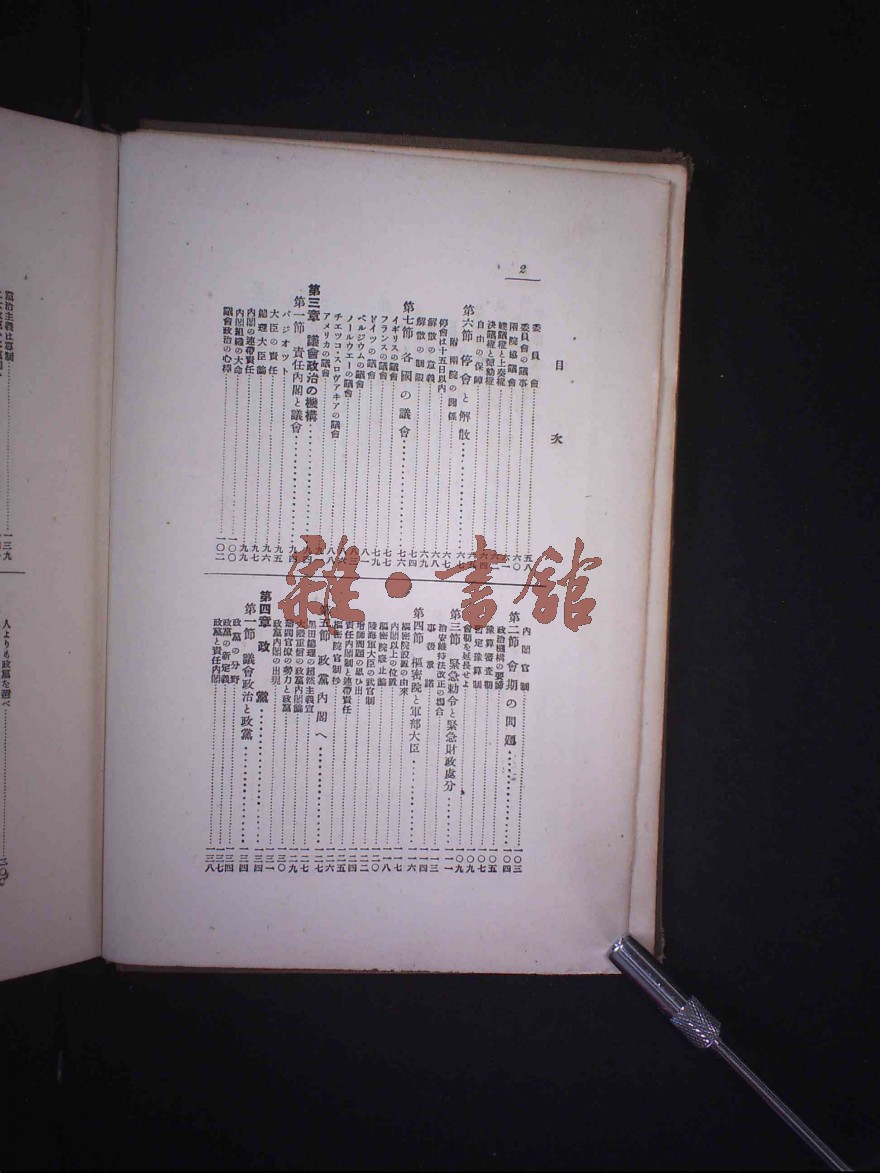 2
目次
委員會 五八
委員會の議事 六〇
兩院協議會
建議權と上奏權
決議權と彈劾權
自由の保障
第六節 停會と解散 六七
附 兩院の關係 六七
停會は十五日以內 六八
解散の意義 六九
解散の制限 七四
第七節 各國の議會 七六
イギリスの議會 七七
フランスの議會 七九
ドイツの議會 八一
ベルジウムの議會
ノールウエーの議會
チエツコ・スロヴアキアの議會
アメリカの議會
第三章 議會政治の機構 九四
第一節 責任內閣と議會 九四
バジオツト 九五
大臣の責任 九六
總理大臣論 九七
內閣の連帶責任 九九
內閣組織の大命 一〇〇
議會政治の心棒 一〇二
內閣官制 一〇三
第二節 會期の問題 一〇四
政治機構の要諦 一〇五
豫算審査期 一〇七
豫算制
會期を延長せよ 一〇九
第三節 緊急勅令と緊急財政處分 一一一
治安維持法改正の場合 一一三
事後承諾 一一四
第四節 樞密院と軍部大臣 一一六
樞密院設置の由來 一一七
內閣以上の位置 一一八
樞密院廢止論 一二〇
陸海軍大臣の武官制 一二二
增師問題の思ひ出 一二四
責任內閣制と連帶責任 一二五
樞密院官制抄 一二六
第五節 政黨內閣へ 一二七
黑田總理の超然主義宣 一二七
大隈重信の政黨內閣論 一二九
藩閥官僚の勢力と政黨 一三〇
政黨內閣の出現 一三一
第四章 政黨 一三四
第一節 議會政治と政黨 一三四
政黨の分野 一三四
政黨の新定義 一三七
政黨と責任內閣 一三八
黨治主義は專制 一三九
人よりも政黨を選べ
雜·書館